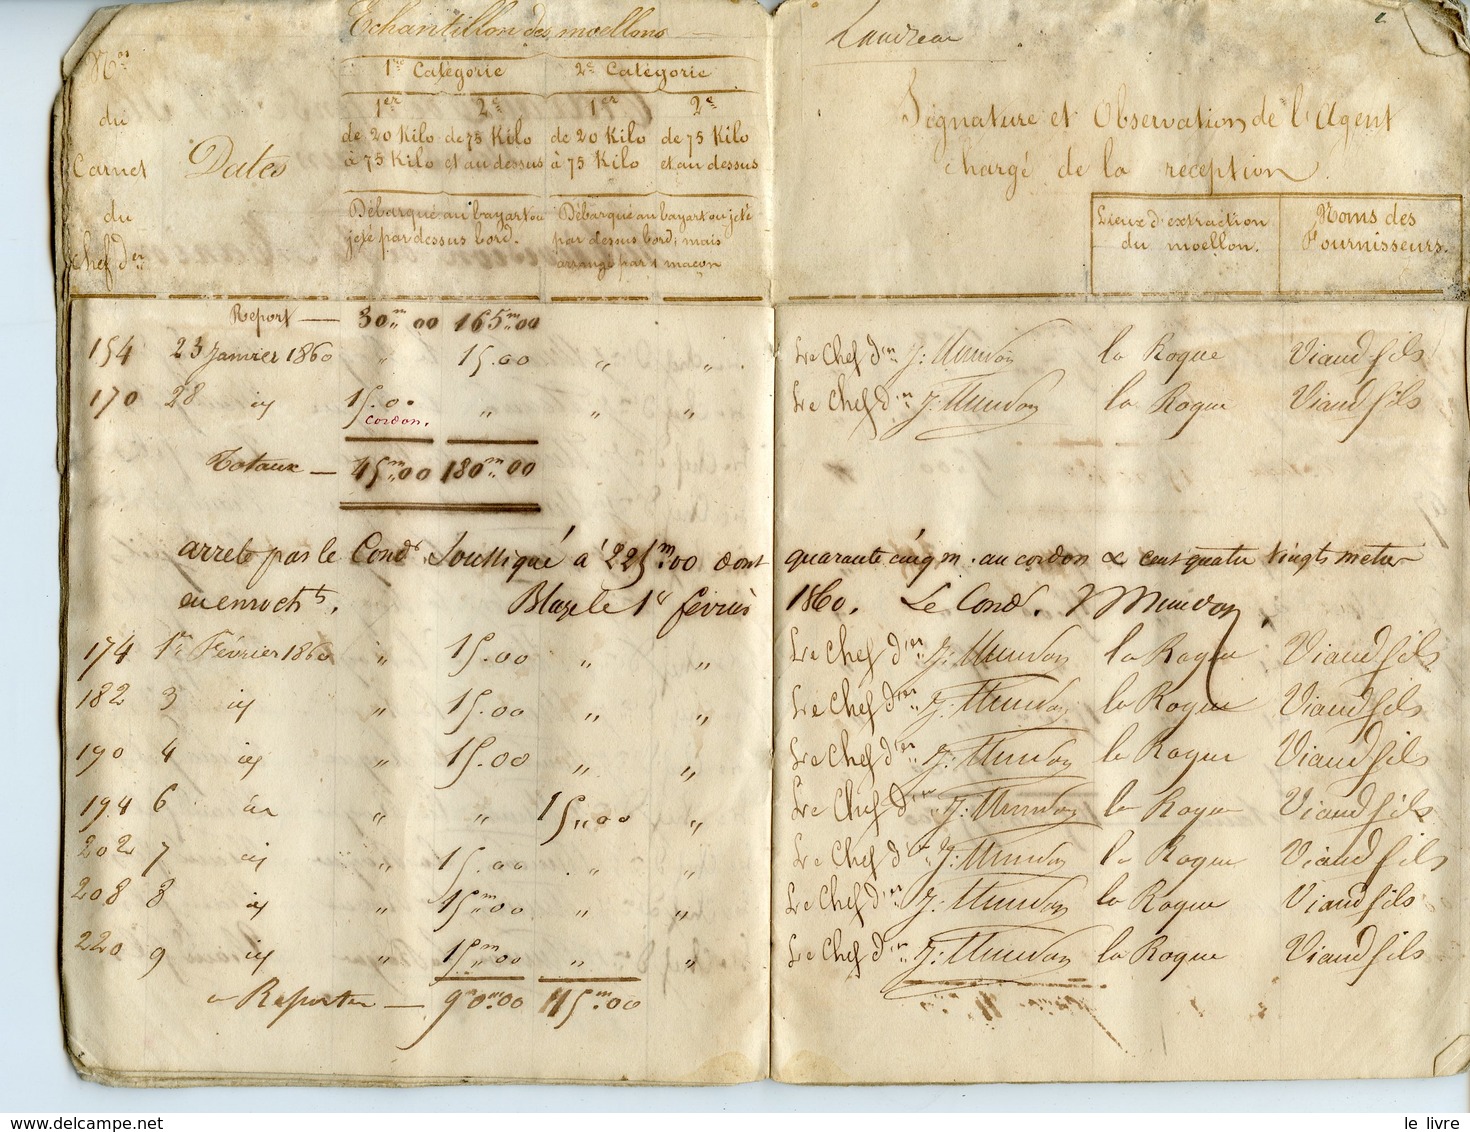 Echantillon des moellons
Nos du Carnet du Chef der
Dates
1re Catégorie 2e Catégorie
1er 2e 1er 2e
de 20 Kilo de 75 Kilo de 20 Kilo de 75 Kilo
à 75 Kilo et au dessus à 75 Kilo et au dessus
Débarqué au bayart ou Débarqué au bayart ou jeté
jeté par dessus bord. par dessus bord; mais
arrangé par 1 maçon
Report — 30m,,00 165m,,00
154 23 Janvier 1860 ,, 15.00 ,, ,,
170 28 id 15.00 ,, ,, ,,
cordon.
Totaux — 45m,,00 180m,,00
arrete par le Condr Soussigné à 225m,,00 dont
en enrochts. Blaye le 1er fevrier
174 1er Février 1860 ,, 15.00 ,, ,,
182 3 id ,, 15.00 ,, ,,
190 4 id ,, 15.00 ,, ,,
194 6 id ,, ,, 15,,00 ,,
202 7 id ,, 15.00 ,, ,,
208 8 id ,, 15m,,00 ,, ,,
220 9 id ,, 15m,,00 ,, ,,
a Reporter — 90m,,00 15m,,00
2
Signature et Observation de l'Agent
chargé de la reception.
Lieux d'extraction du moellon. Noms des Fournisseurs.
Le Chef der la Roque Viaud fils
Le Chef der la Roque Viaud fils
quarante cinq m. au cordon & cent quatre vingts metres
1860. Le Condr.
Le Chef der la Roque Viaud fils
Le Chef der la Roque Viaud fils
Le Chef der la Roque Viaud fils
Le Chef der la Roque Viaud fils
Le Chef der la Roque Viaud fils
Le Chef der la Roque Viaud fils
Le Chef der la Roque Viaud fils
le livre